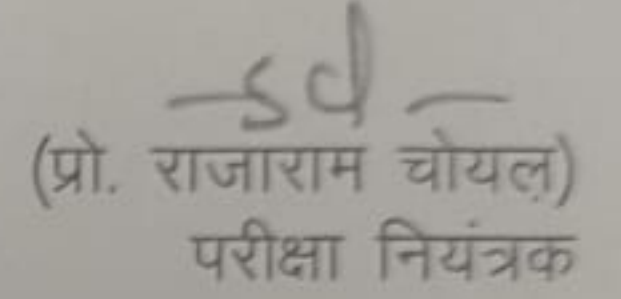 -sd-
(प्रो. राजाराम चोयल)
परीक्षा नियंत्रक